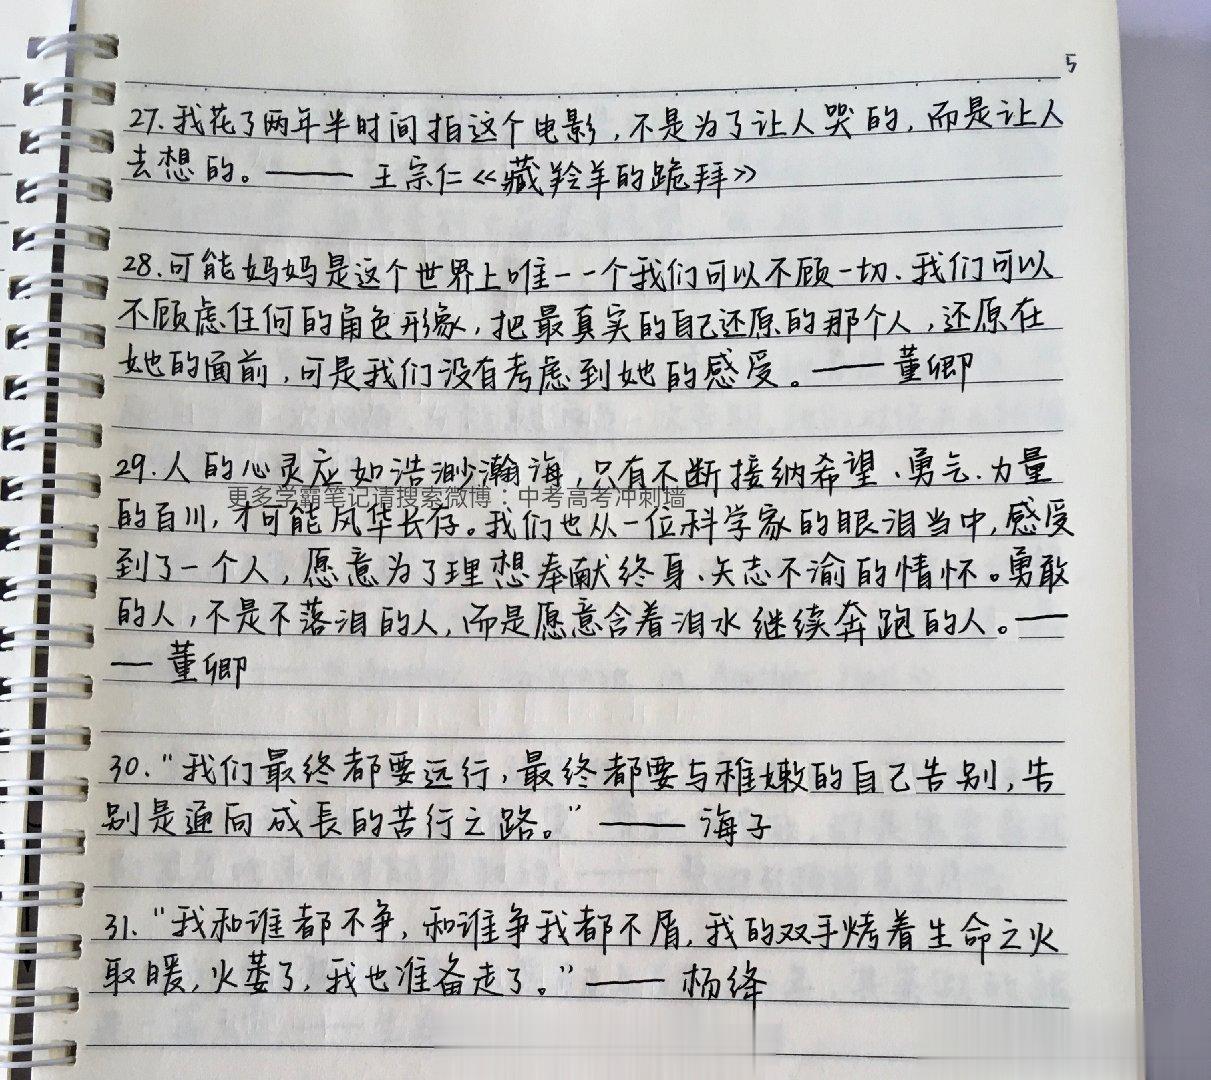 5
27.我花了两年半时间拍这个电影，不是为了让人哭的，而是让人
去想的。—— 王宗仁《藏羚羊的跪拜》
28.可能妈妈是这个世界上唯一一个我们可以不顾一切、我们可以
不顾虑任何的角色形象，把最真实的自己还原的那个人，还原在
她的面前，可是我们没有考虑到她的感受。——董卿
29.人的心灵应如浩渺瀚海，只有不断接纳希望、勇气、力量
更多学霸笔记请搜索微博：中考高考冲刺墙
的百川，才可能风华长存。我们也从一位科学家的眼泪当中，感受
到了一个人，愿意为了理想奉献终身、矢志不渝的情怀。勇敢
的人，不是不落泪的人，而是愿意含着泪水继续奔跑的人。—
—董卿
30.“我们最终都要远行，最终都要与稚嫩的自己告别，告
别是通向成長的苦行之路。”—— 海子
31.“我和谁都不争，和谁争我都不屑，我的双手烤着生命之火
取暖，火萎了，我也准备走了。”—— 杨绛